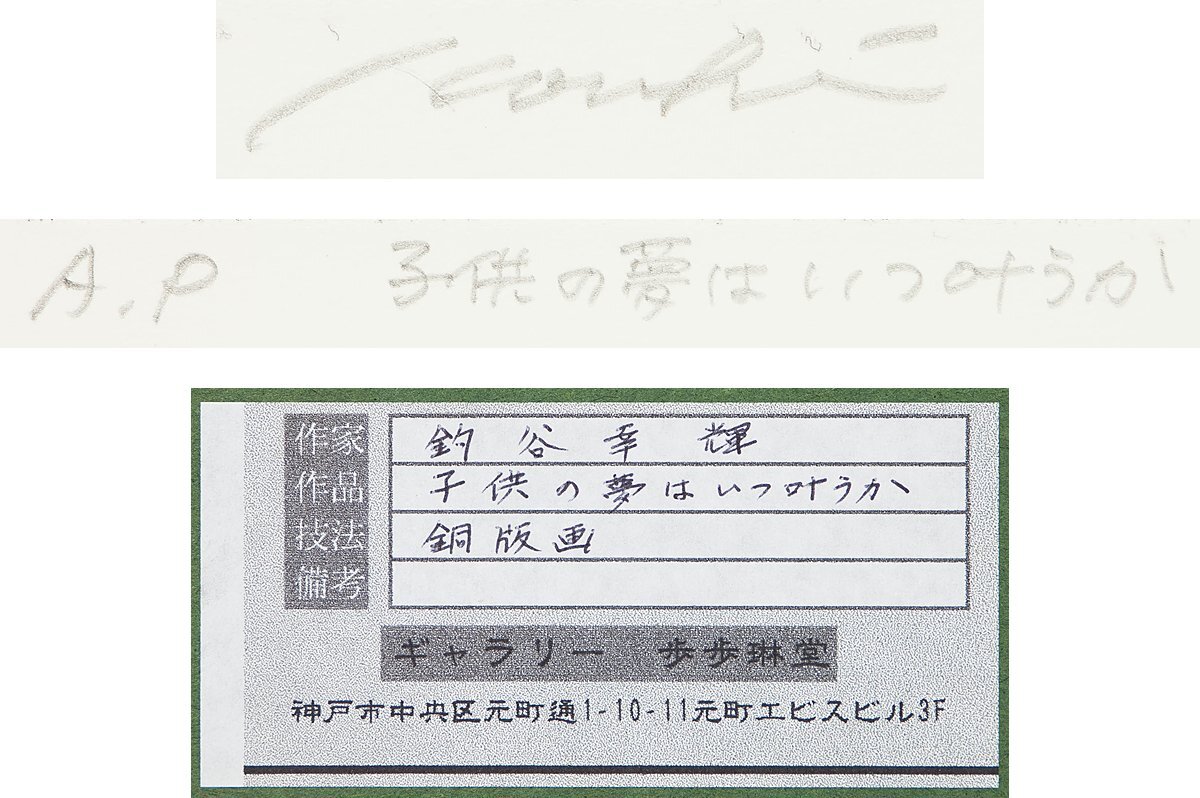 Kouki
A.P 子供の夢はいつ叶うか
作家 釣谷幸輝
作品 子供の夢はいつ叶うか
技法 銅版画
備考
ギャラリー 歩歩琳堂
神戸市中央区元町通1-10-11元町エビスビル3F